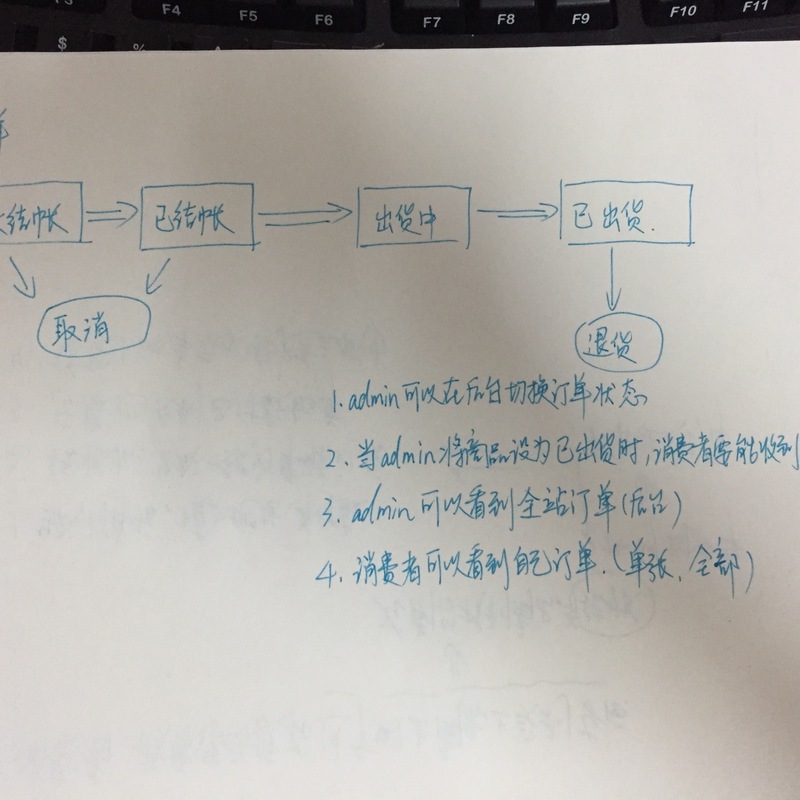 F4 F5 F6 F7 F8 F9 F10 F11
$ %
结帐 已结帐 出货中 已出货.
取消 退货
1. admin可以在后台切换订单状态
2. 当admin将商品设为已出货时,消费者要能收到
3. admin可以看到全站订单(后台)
4. 消费者可以看到自己订单.(单张、全部)